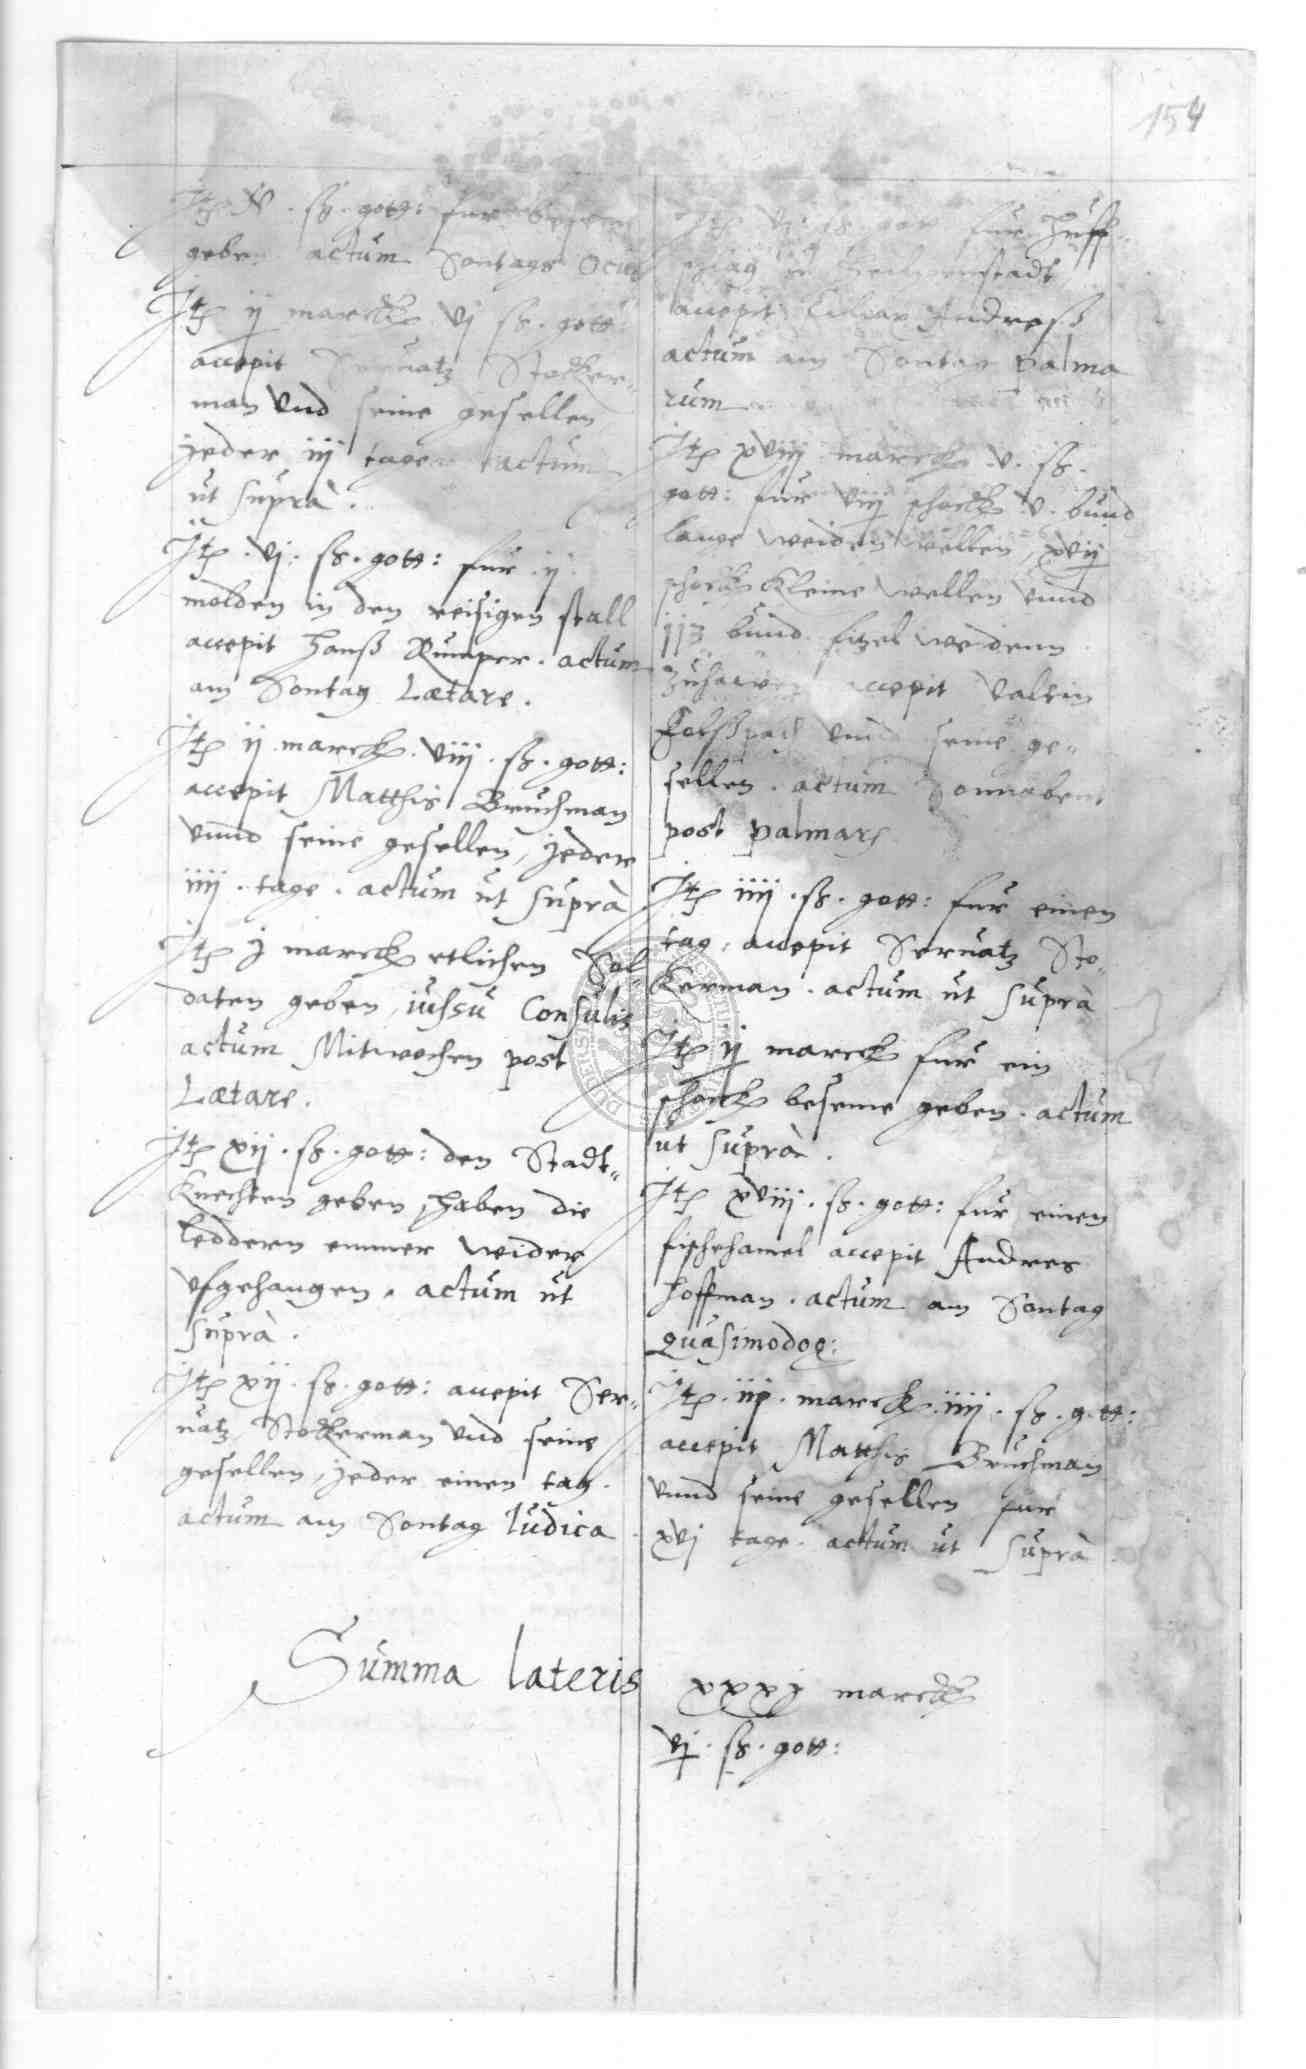 154
Jtꝫ v. ß. gott: fur besem
geben actum Sontags Oculi
Jtꝫ ij marck vj ß. gott:
accepit Servatz Stocker-
man vnd seine gesellen
jeder iij tage actum
ut suprà.
Jtꝫ. vj. ß. gott: fur .ij.
molden in den reisigen stall
accepit Hanß Kumper. actum
am Sontag Lætare.
Jtꝫ ij marck. viij. ß. gott:
accepit Matthis Bruchman
vnnd seine gesellen, jeder
iiij. tage. actum ut suprà
Jtꝫ j marck etlichen Sol-
daten geben, iussu Consulis
actum Mitwochen post
Lætare.
Jtꝫ xij. ß. gott: den Stadt-
Knechten geben, haben die
leddern emmer wider
vfgehangen. actum ut
suprà.
Jtꝫ xij. ß. gott: accepit Ser-
vatz Stockerman vnd seine
gesellen, jeder einen tag.
actum am Sontag Iudica.
Jtꝫ vj. ß. gott fur Huff-
schlag
accepit Andreß
actum am Sontag Palma
rum
Jtꝫ xviij marck .v. ß.
gott: fur viij schock v. bund
lange weiden wellen, xvij
schock kleine wellen vnnd
bund fitzel weidenn
accepit Valtin
vnnd seine ge-
sellen. actum Sonnabent
post Palmarꝫ
Jtꝫ iiij. ß. gott: fur einen
tag, accepit Servatz Sto-
kerman. actum ut suprà
Jtꝫ ij marck fur ein
schock beseme geben. actum
ut suprà.
Jtꝫ xviij. ß. gott: fur einen
fischhamel accepit Andres
Hoffman. actum am Sontag
Quasimodog:
Jtꝫ. iij. marck iiij. ß. gott:
accepit Matthis Bruchman
vnnd seine gesellen fur
xvj tage. actum ut suprà
Summa lateris xxxj marck
vj. ß. gott: